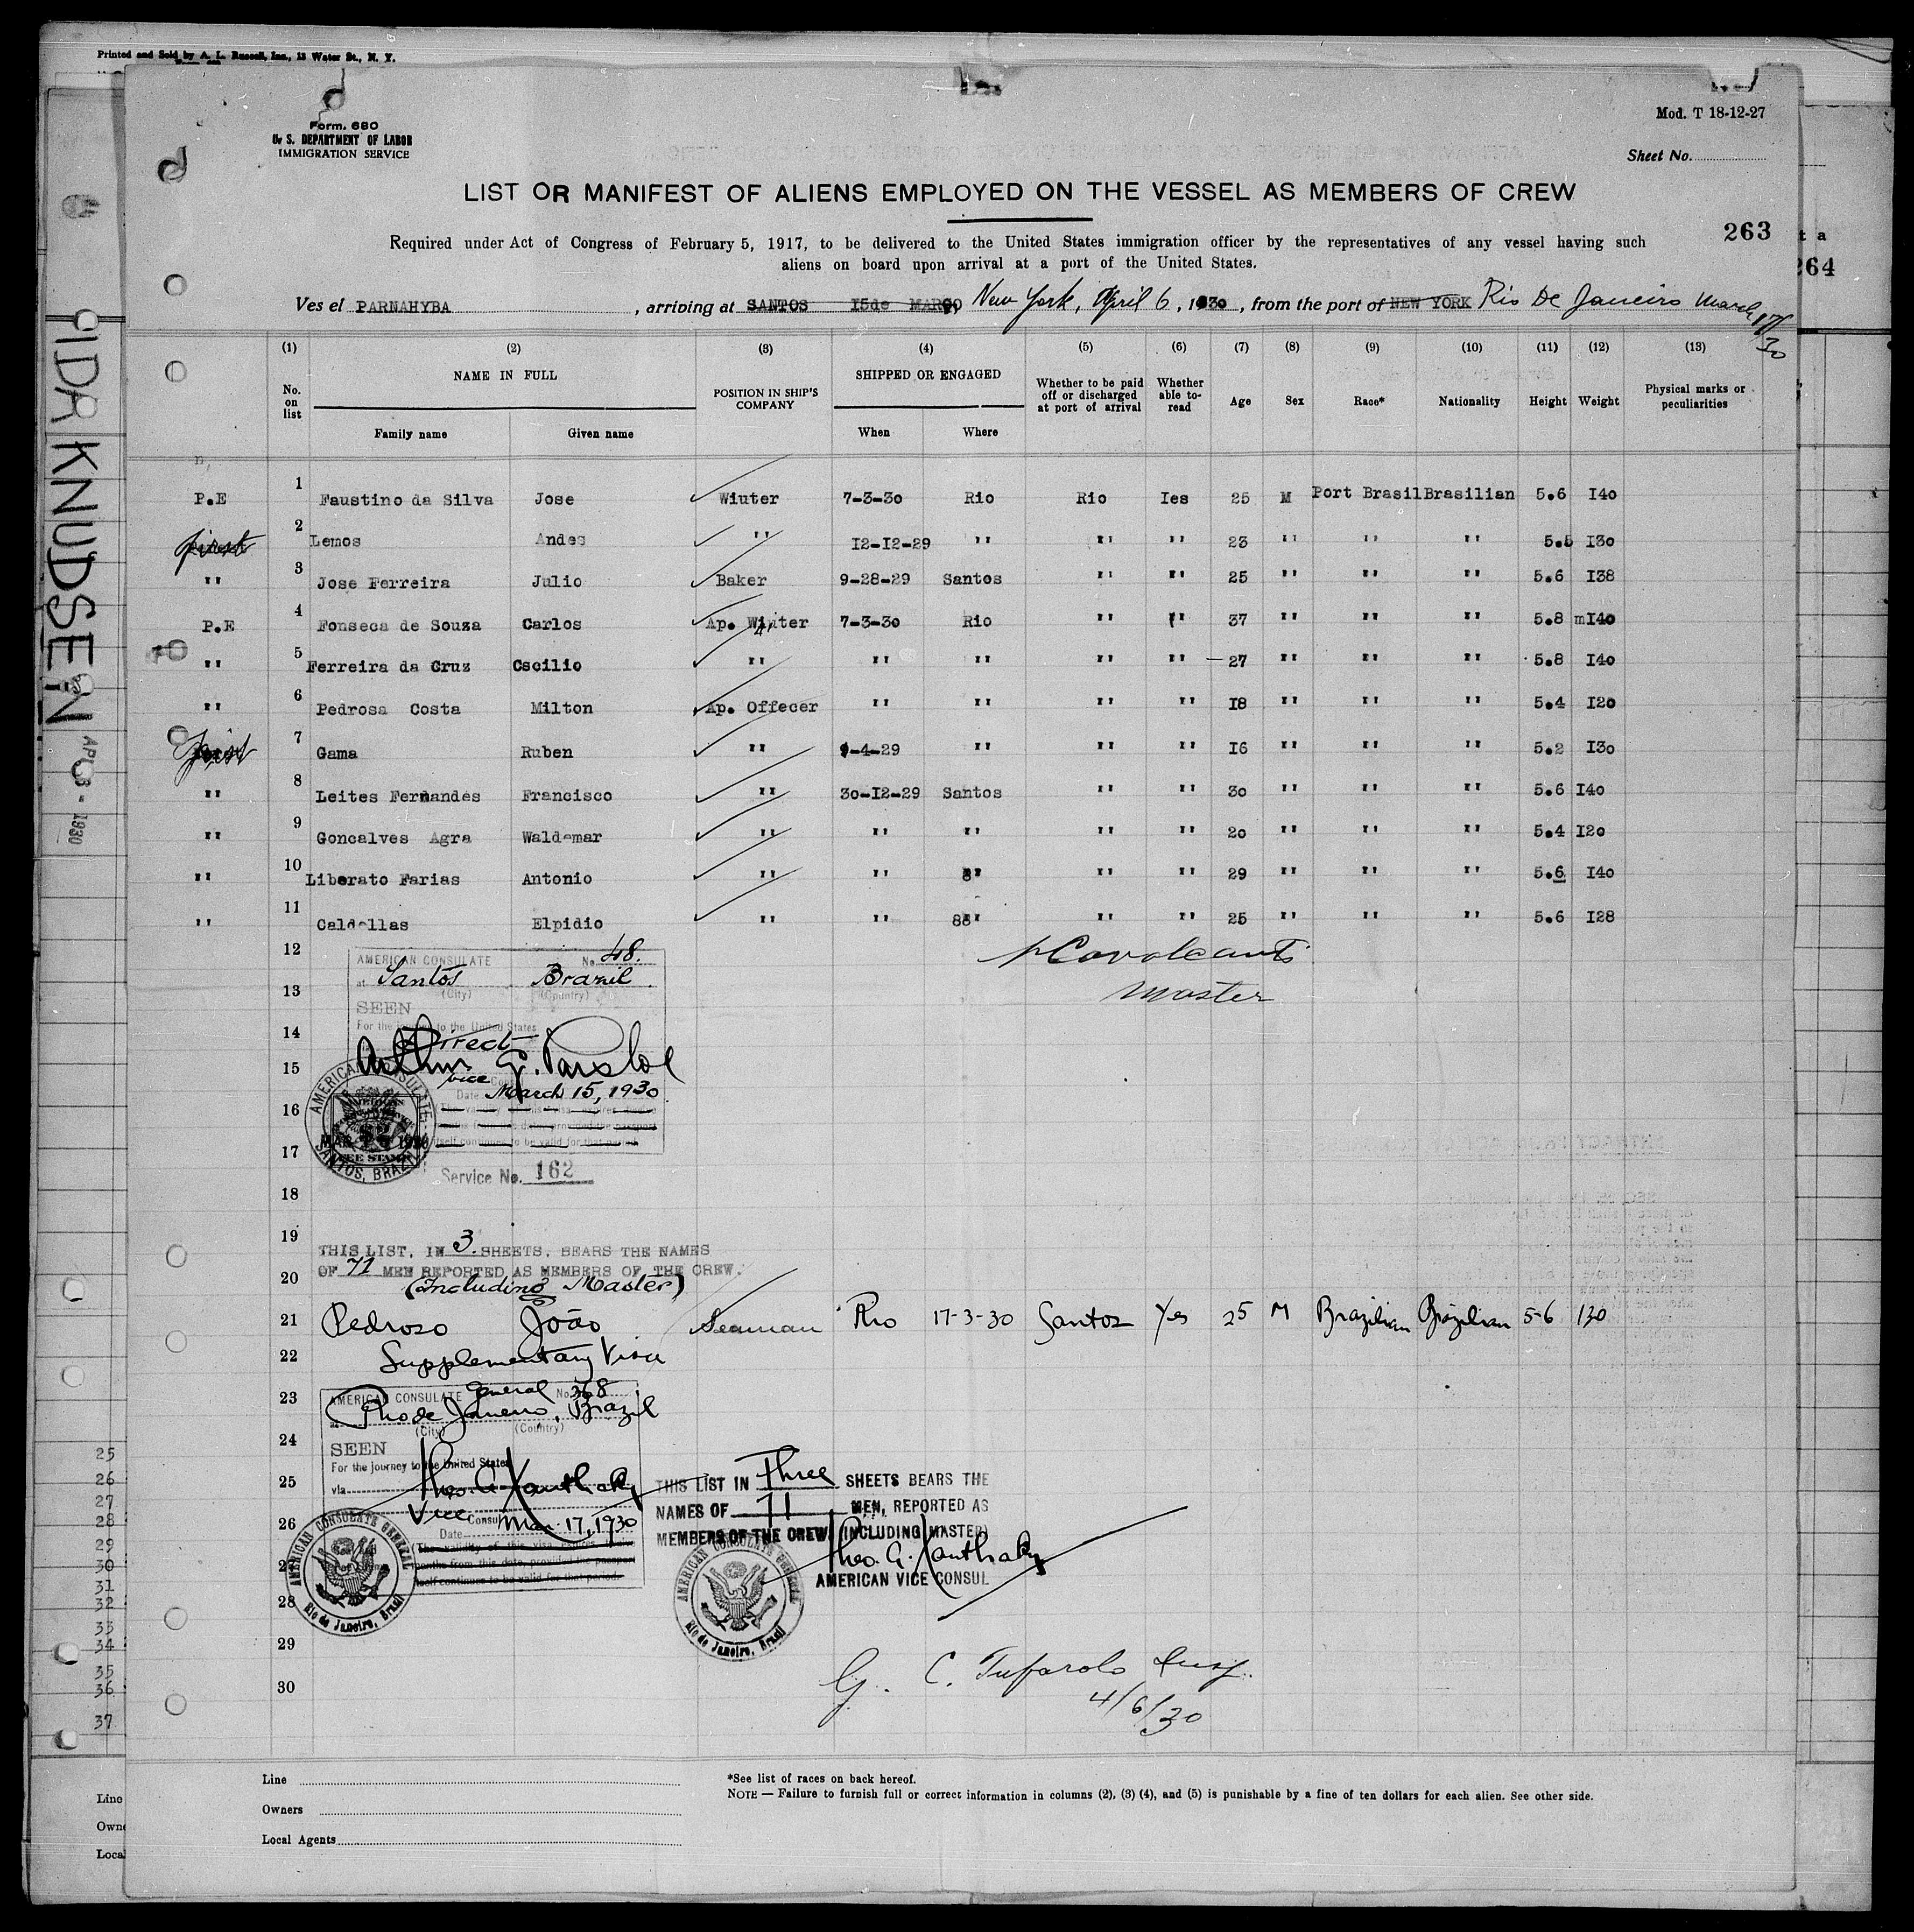 Printed and Sold by A. L. Russell, Inc., 13 Water St., N. Y.
Form. 680
U. S. DEPARTMENT OF LABOR
IMMIGRATION SERVICE
Mod. T 18-12-27
Sheet No.
LIST OR MANIFEST OF ALIENS EMPLOYED ON THE VESSEL AS MEMBERS OF CREW
Required under Act of Congress of February 5, 1917, to be delivered to the United States immigration officer by the representatives of any vessel having such
aliens on board upon arrival at a port of the United States.
263
t a
264
Ves el PARNAHYBA, arriving at SANTOS 15de MARÇO New York, April 6, 1930, from the port of NEW YORK Rio De Janeiro March 17/30
(1) (2) (3) (4) (5) (6) (7) (8) (9) (10) (11) (12) (13)
No. on list NAME IN FULL Family name Given name POSITION IN SHIP'S COMPANY SHIPPED OR ENGAGED When Where Whether to be paid off or discharged at port of arrival Whether able to-read Age Sex Race* Nationality Height Weight Physical marks or peculiarities
P.E 1 Faustino da Silva Jose Wiuter 7-3-30 Rio Rio Ies 25 M Port Brasil Brasilian 5.6 I40
first 2 Lemos Andes " I2-I2-29 " " " 23 " " " 5.5 I30
" 3 Jose Ferreira Julio Baker 9-28-29 Santos " " 25 " " " 5.6 I38
P.E 4 Fonseca de Souza Carlos Ap. Winter 7-3-30 Rio " " 37 " " " 5.8 mI40
" 5 Ferreira da Cruz Cscilio " " " " " 27 " " " 5.8 I40
" 6 Pedrosa Costa Milton Ap. Offecer " " " " I8 " " " 5.4 I20
first 7 Gama Ruben " 9-4-29 " " " I6 " " " 5.2 I30
" 8 Leites Fernandes Francisco " 30-I2-29 Santos " " 30 " " " 5.6 I40
" 9 Goncalves Agra Waldemar " " " " " 20 " " " 5.4 I20
" 10 Liberato Farias Antonio " " 8" " " 29 " " " 5.6 I40
" 11 Caldellas Elpidio " " 88" " " 25 " " " 5.6 I28
12
AMERICAN CONSULATE No. 48.
Cavalcanti
at Santos Brazil
(City) (Country)
13
Master
SEEN
14
For the journey to the United States
Direct
15
vice
Date March 15, 1930
16
AMERICAN CONSULATE
SANTOS, BRAZIL
FEE STAMP
itself continues to be valid for that period.
17
Service No. 162
18
19
THIS LIST, IN 3 SHEETS, BEARS THE NAMES
OF 71 MEN REPORTED AS MEMBERS OF THE CREW.
20
(Including Master)
21 Pedroso João Seaman Rio 17-3-30 Santos Yes 25 M Brazilian Brazilian 5-6 130
22 Supplementary Visa
23
AMERICAN CONSULATE General No. 368
Rio de Janeiro, Brazil
(City) (Country)
24
SEEN
For the journey to the United States
25
via
Theo. G. Xanthaky
Vice Consul
26
Date Mar. 17, 1930
The validity of this visa expires
months from this date, provided the passport
itself continues to be valid for that period.
27
AMERICAN CONSULATE GENERAL
Rio de Janeiro, Brasil
28
THIS LIST IN Three SHEETS BEARS THE
NAMES OF 71 MEN, REPORTED AS
MEMBERS OF THE CREW (INCLUDING MASTER)
Theo. G. Xanthaky
AMERICAN VICE CONSUL
AMERICAN CONSULATE GENERAL
Rio de Janeiro, Brasil
29
30
G. C. Tufarolo Insp.
4/6/30
Line
Owners
Local Agents
*See list of races on back hereof.
NOTE — Failure to furnish full or correct information in columns (2), (3) (4), and (5) is punishable by a fine of ten dollars for each alien. See other side.
IDA KNUDSEN
APL 3 - 1930
25
26
27
28
29
30
31
32
33
34
35
36
37
Line
Owne
Local